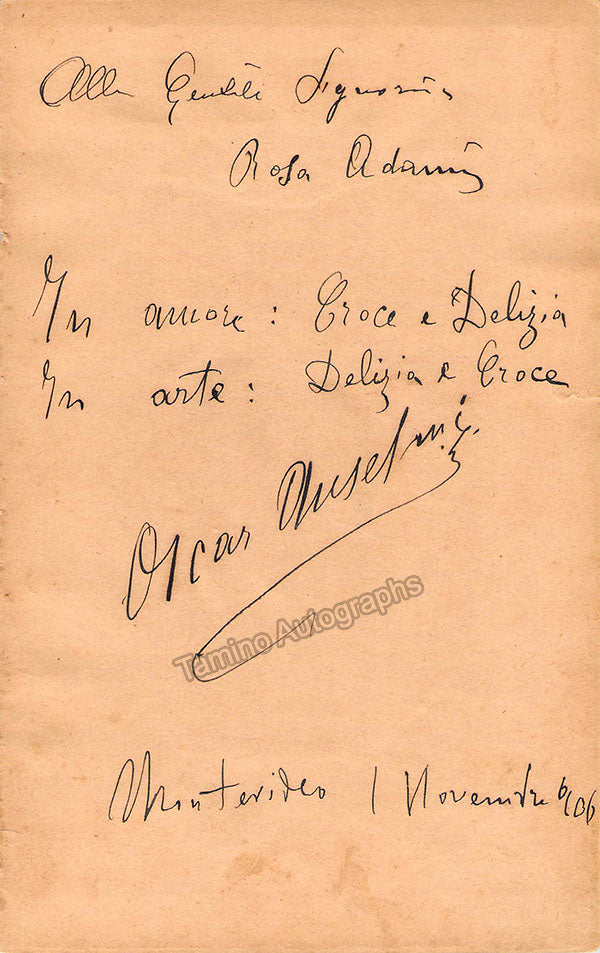 Alla Gentile Signorina
Rosa Adami
In amore: Croce e Delizia
In arte: Delizia e Croce
Oscar Anselmi
Tamino Autographs
Montevideo 1 Novembre